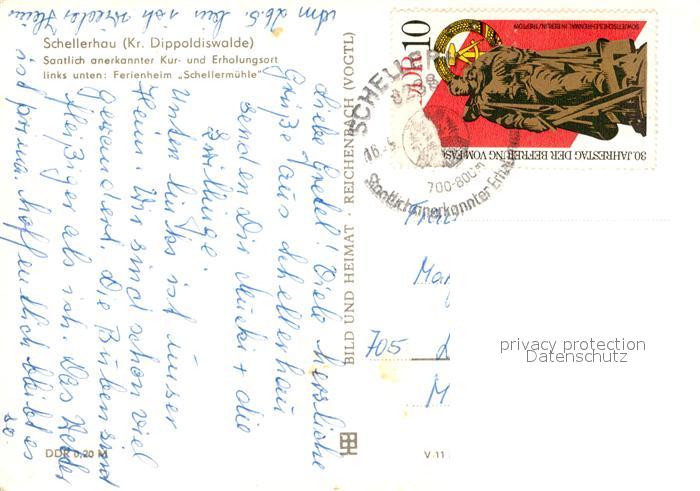 Schellerhau (Kr. Dippoldiswalde)
Saatlich anerkannter Kur- und Erholungsort
links unten: Ferienheim „Schellermühle"
Liebe Gretel! Viele herzliche
Grüße aus Schellerhau
senden Dir Mucki + die
Zwillinge.
Unten links ist unser
Heim. Wir sind schon viel
gewandert. Die Buben sind
fleißiger als ich. Das Wetter
ist prima. Hoffentlich bleibt es
so.
Am 26.5. bin ich wieder
DDR 0,20 M
BILD UND HEIMAT REICHENBACH (VOGTL)
V 11
DDR 10
SOWJETISCHES EHRENMAL IN BERLIN/TREPTOW
30. JAHRESTAG DER BEFREIUNG VOM FAS
SCHELLER
16.5
700-800m
Staatlich anerkannter Erholung
705
M
privacy protection
Datenschutz